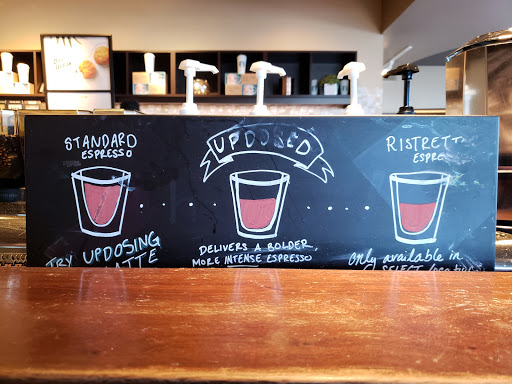 STANDARD
ESPRESSO
UPDOSED
RISTRETT
ESPRE
TRY UPDOSING
LATTE
DELIVERS A BOLDER,
MORE INTENSE ESPRESSO
Only available in
SELECT locations